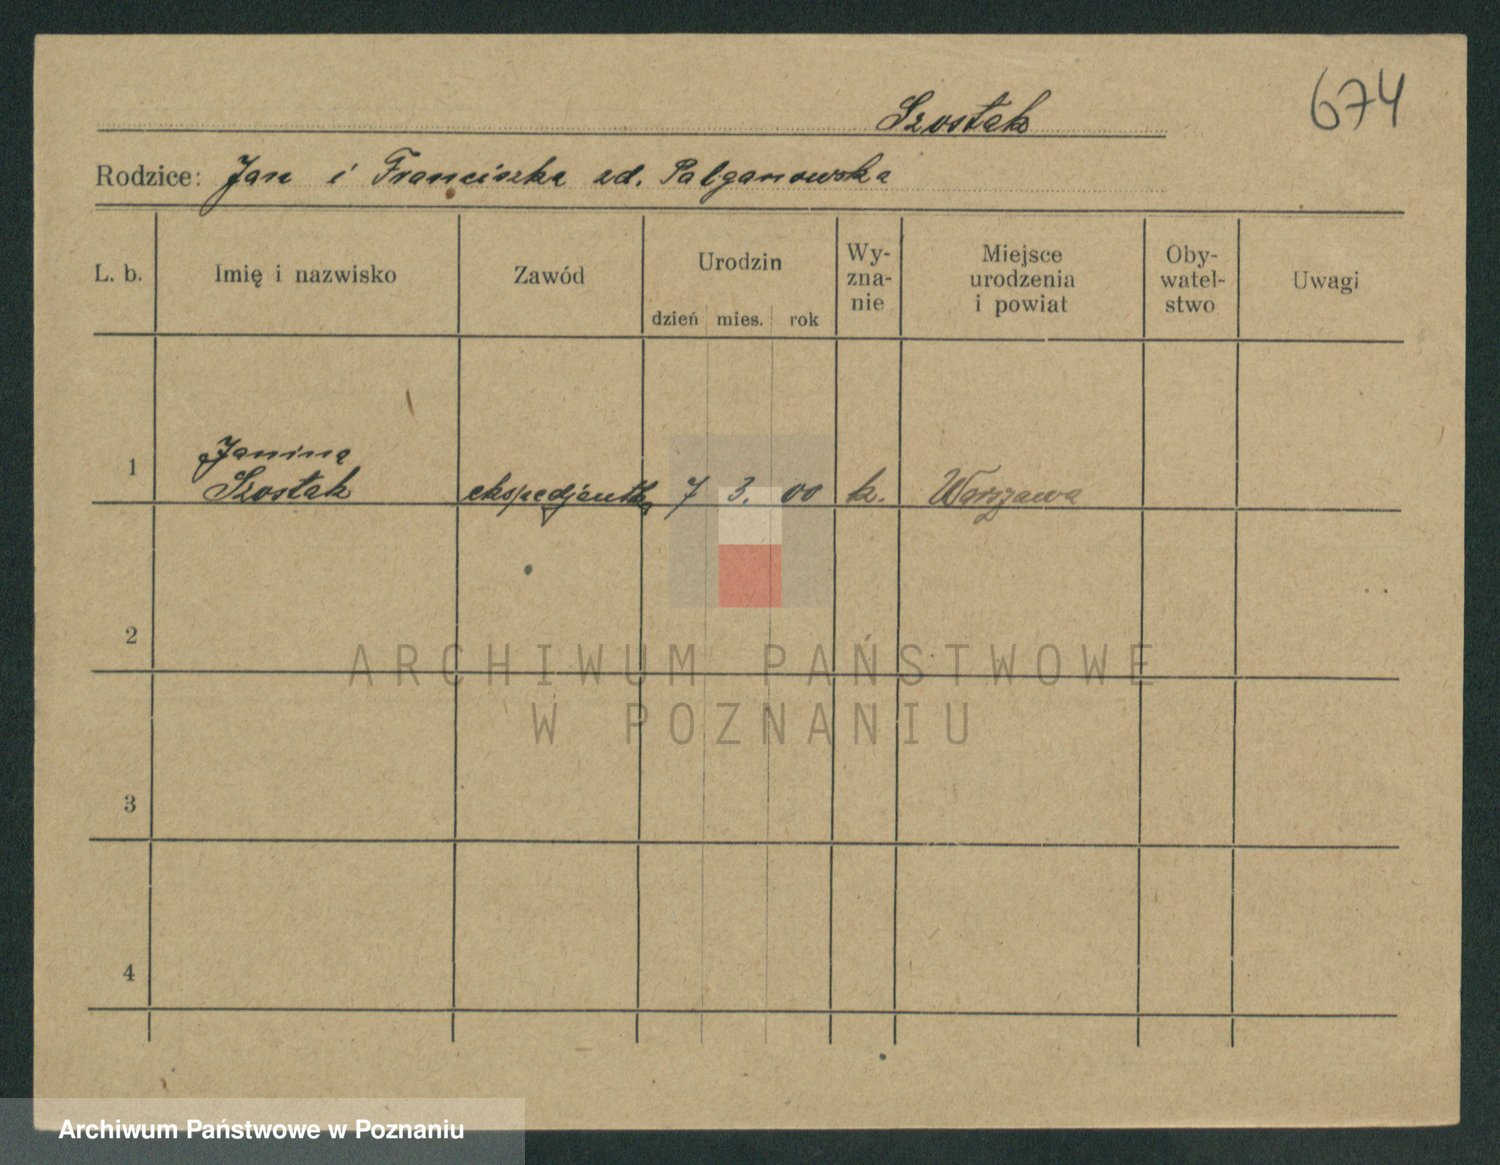 674
Szostak
Rodzice: Jan i Franciszka zd. Palganowska
L. b.
Imię i nazwisko
Zawód
Urodzin
dzień mies. rok
Wy-
zna-
nie
Miejsce
urodzenia
i powiat
Oby-
watel-
stwo
Uwagi
1
Janina
Szostak
ekspedjentka
7 3. 00
k.
Warszawa
2
3
4
ARCHIWUM PAŃSTWOWE
W POZNANIU
Archiwum Państwowe w Poznaniu